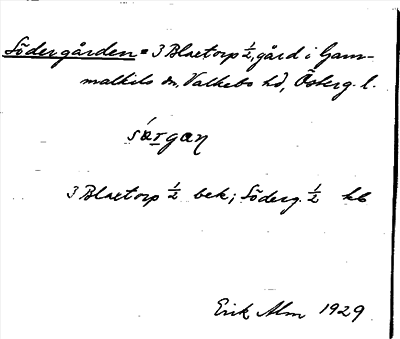 Södergården = 3 Blaetorp ½, gård i Gam-
malkils sn, Valkebo hd, Österg. l.
sárgaŋ
3 Blaetorp ½ bek; Söderg. ½ kb
Erik Alm 1929